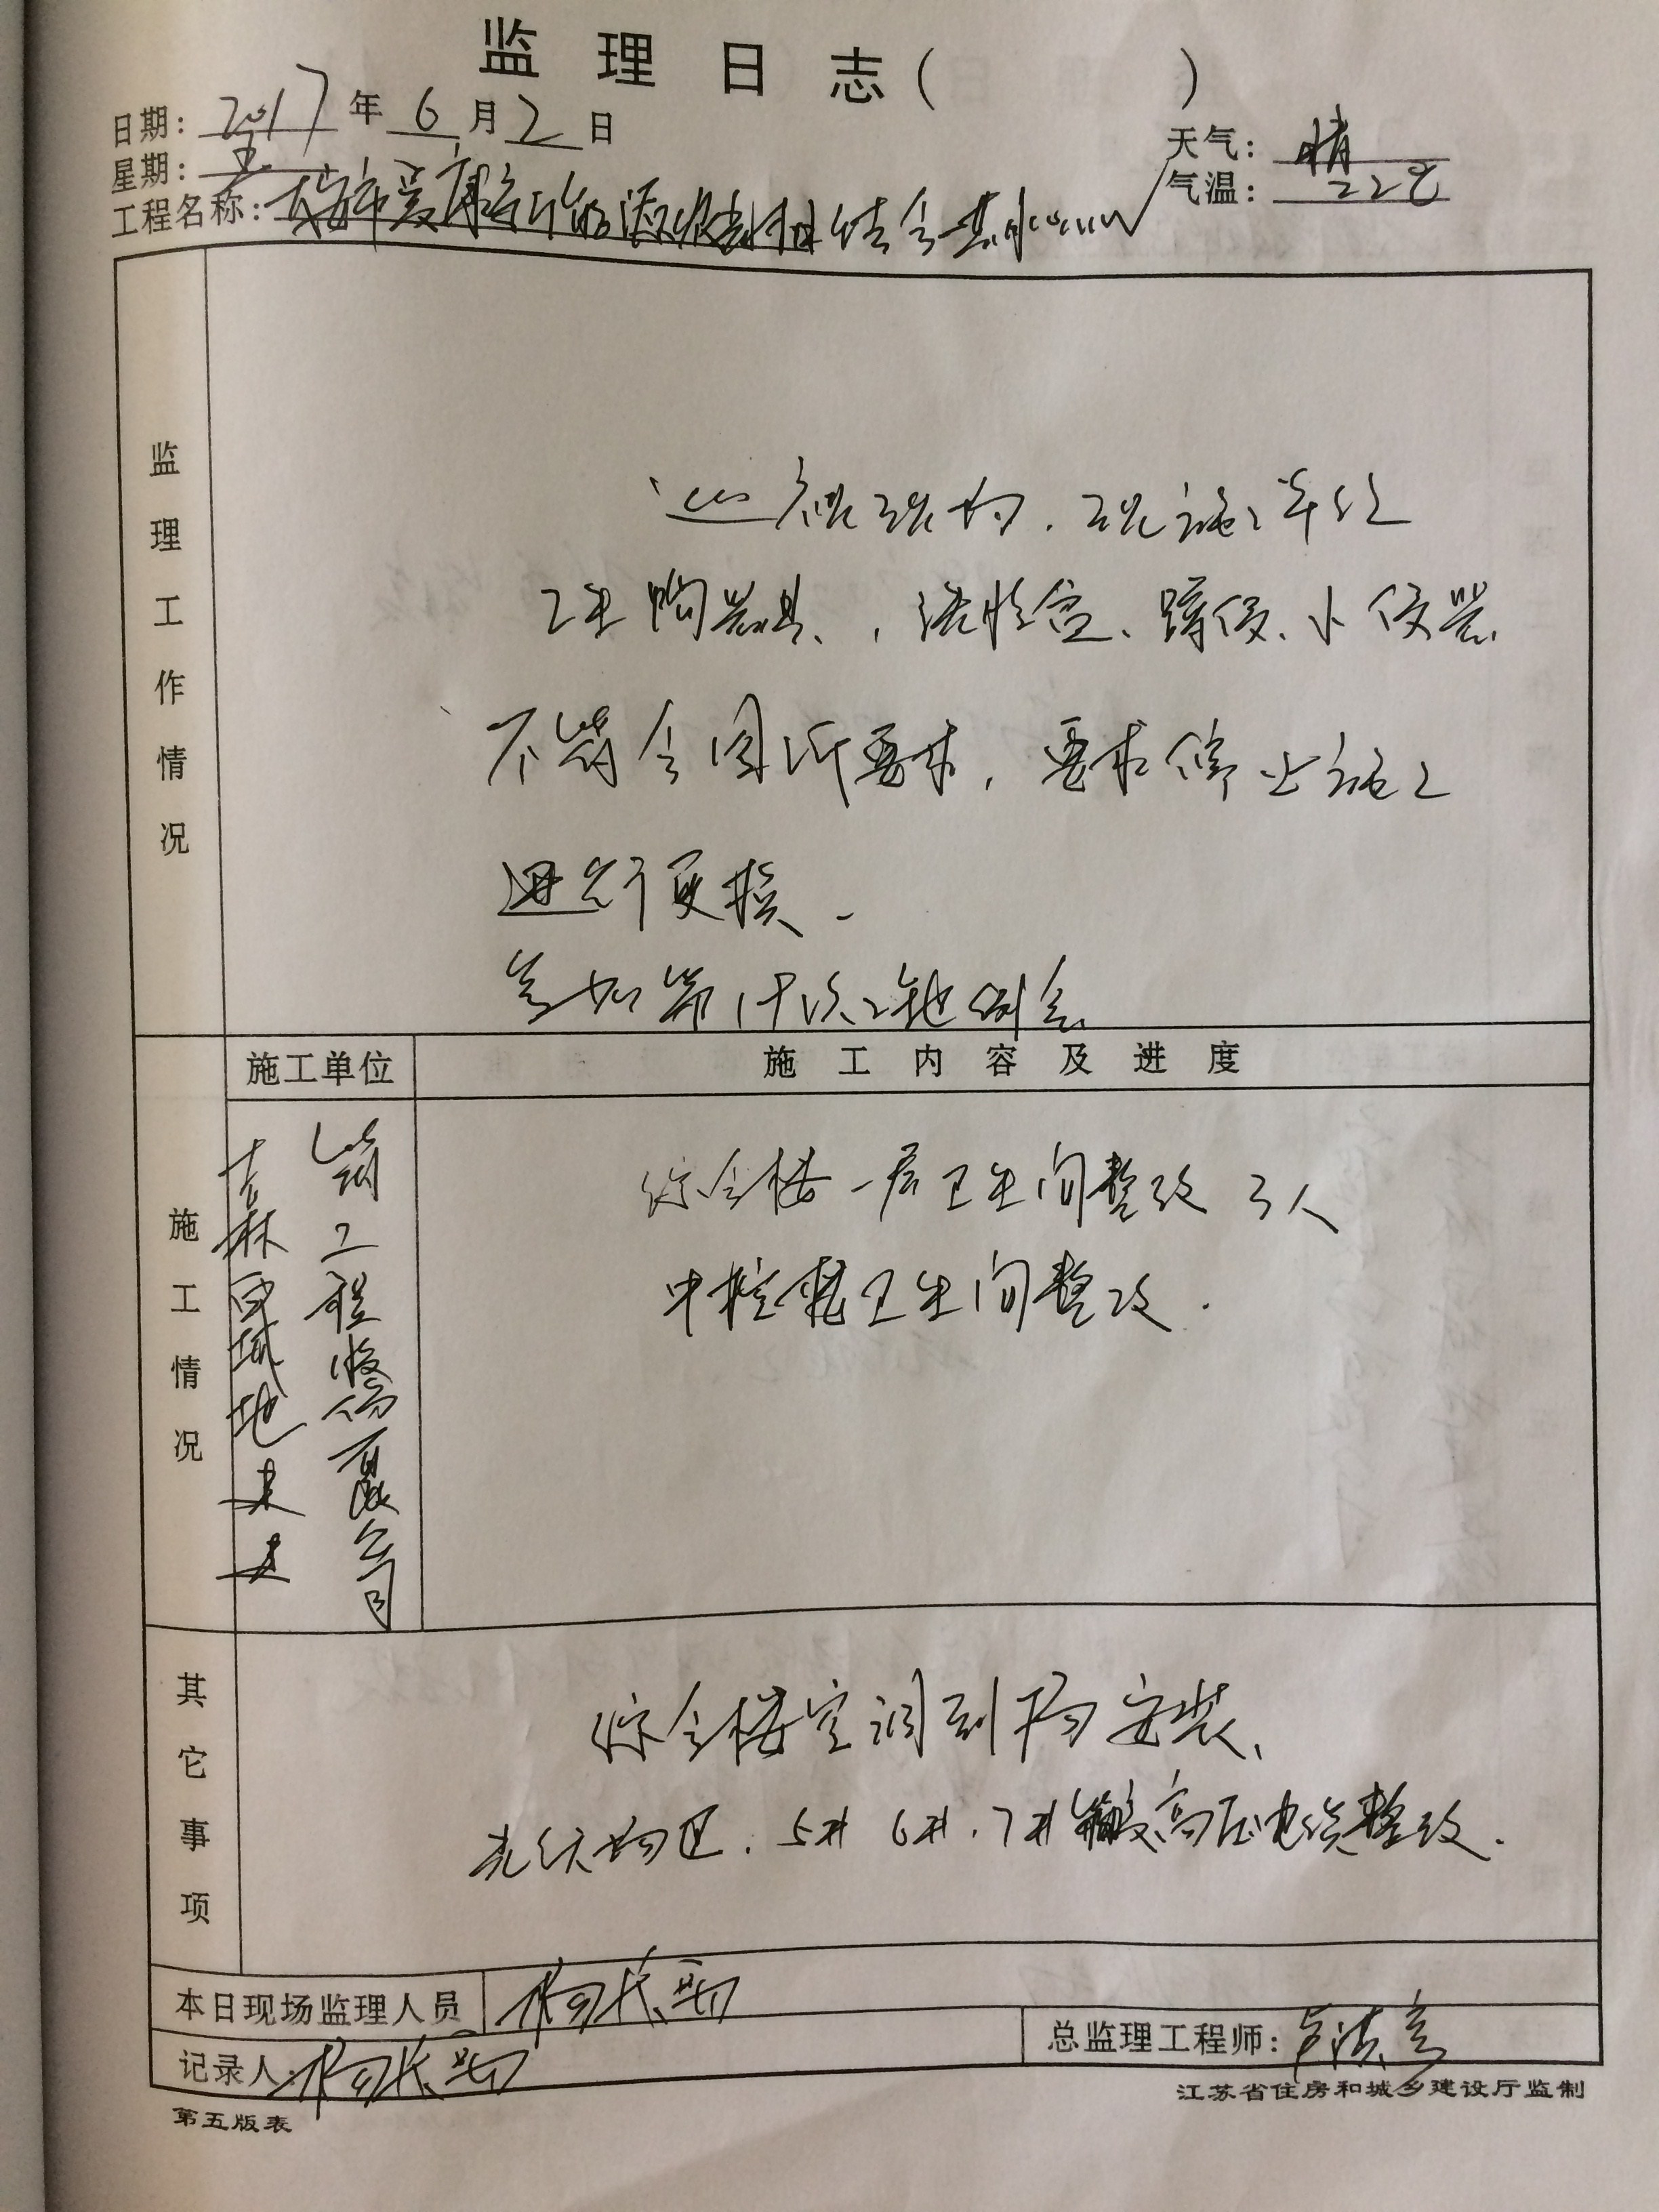 监理日志( )
日期: 2017年6月2日
星期: 五
天气: 晴
气温: 22℃
工程名称: 大安市爱康
监理工作情况
巡视现场,现施工单位
卫生陶器具、,洗脸盆、蹲便、小便器
不符合国标要求,要求停止施工
进行更换.
参加第 次工地例会
施工单位
施工内容及进度
施工情况
吉林百城地
筑工程 公司
综合楼一层卫生间整改 3人
中控楼卫生间整改.
其它事项
综合楼空调到场安装、
光伏场区.5# 6#.7#箱变高压电缆整改.
本日现场监理人员 杨长
记录人: 杨长
总监理工程师: 卢洪彦
第五版表
江苏省住房和城乡建设厅监制